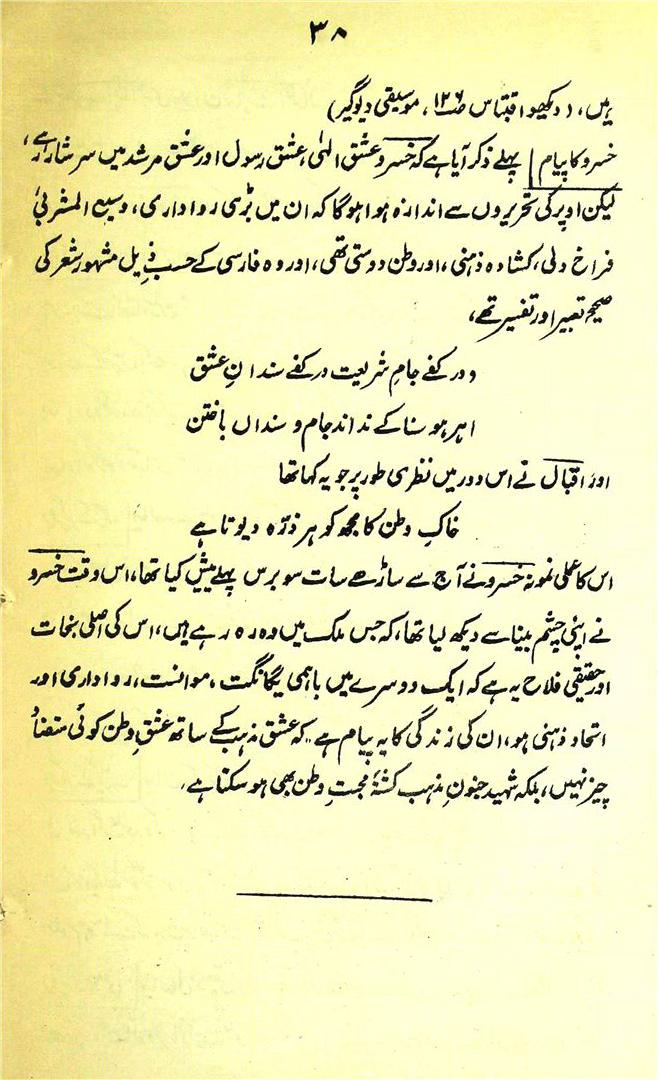 ۳۸
ہیں، (دیکھو اقتباس ص۱۲۶، موسیقی دیوگیر)
خسرو کا پیام | پہلے ذکر آیا ہے کہ خسرو عشق الٰہی، عشق رسول اور عشق مرشد میں سرشار رہے،
لیکن اوپر کی تحریروں سے اندازہ ہوا ہوگا کہ ان میں بڑی رواداری، وسیع المشربی
فراخ دلی، کشادہ ذہنی، اور وطن دوستی تھی، اور وہ فارسی کے حسب ذیل مشہور شعر کی
صحیح تعبیر اور تفسیر تھے،
در کفے جامِ شریعت در کفے سندانِ عشق
ہر ہوسناکے نداند جام و سنداں باختن
اور اقبال نے اس دور میں نظری طور پر جو یہ کہا تھا
خاکِ وطن کا مجھ کو ہر ذرّہ دیوتا ہے
اس کا عملی نمونہ خسرو نے آج سے ساڑھے سات سو برس پہلے پیش کیا تھا، اس وقت خسرو
نے اپنی چشم بینا سے دیکھ لیا تھا، کہ جس ملک میں وہ رہ رہے ہیں، اس کی اصلی نجات
اور حقیقی فلاح یہ ہے کہ ایک دوسرے میں باہمی یگانگت، موانست، رواداری اور
اتحاد ذہنی ہو، ان کی زندگی کا یہ پیام ہے کہ عشق مذہب کے ساتھ عشقِ وطن کوئی متضاد
چیز نہیں، بلکہ شہید جنونِ مذہب کشتۂ محبتِ وطن بھی ہو سکتا ہے.